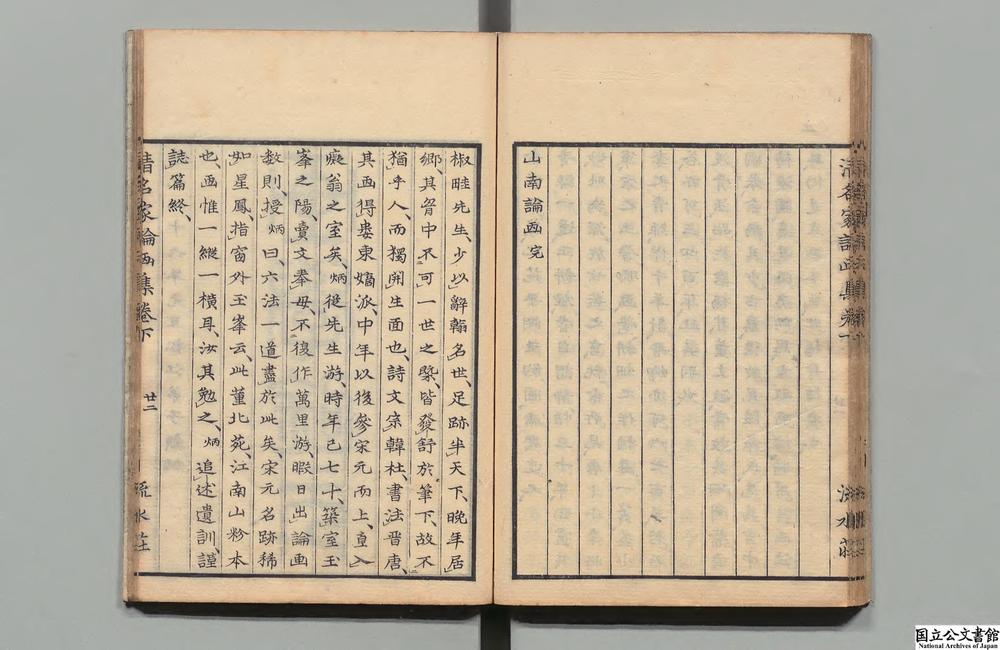 山南論画完
椒畦先生、少以辭翰名世、足跡半天下、晩年居
郷、其胷中不可一世之槩、皆發舒於筆下、故不
猶乎人、而獨開生面也、詩文宗韓杜、書法晋唐、
其画得婁東嫡派、中年以後參宋元而上、直入
癡翁之室矣、炳從先生游、時年已七十、築室玉
峯之陽、賣文奉母、不復作萬里游、暇日出論画
数則、授炳曰六法一道盡於此矣、宋元名跡稀
如星鳳、指窗外玉峯云、此董北苑、江南山粉本
也、画惟一縱一横耳、汝其勉之、炳追述遺訓、謹
誌篇終、
清名家論画集卷下
廿二
流水荘
国立公文書館
National Archives of Japan